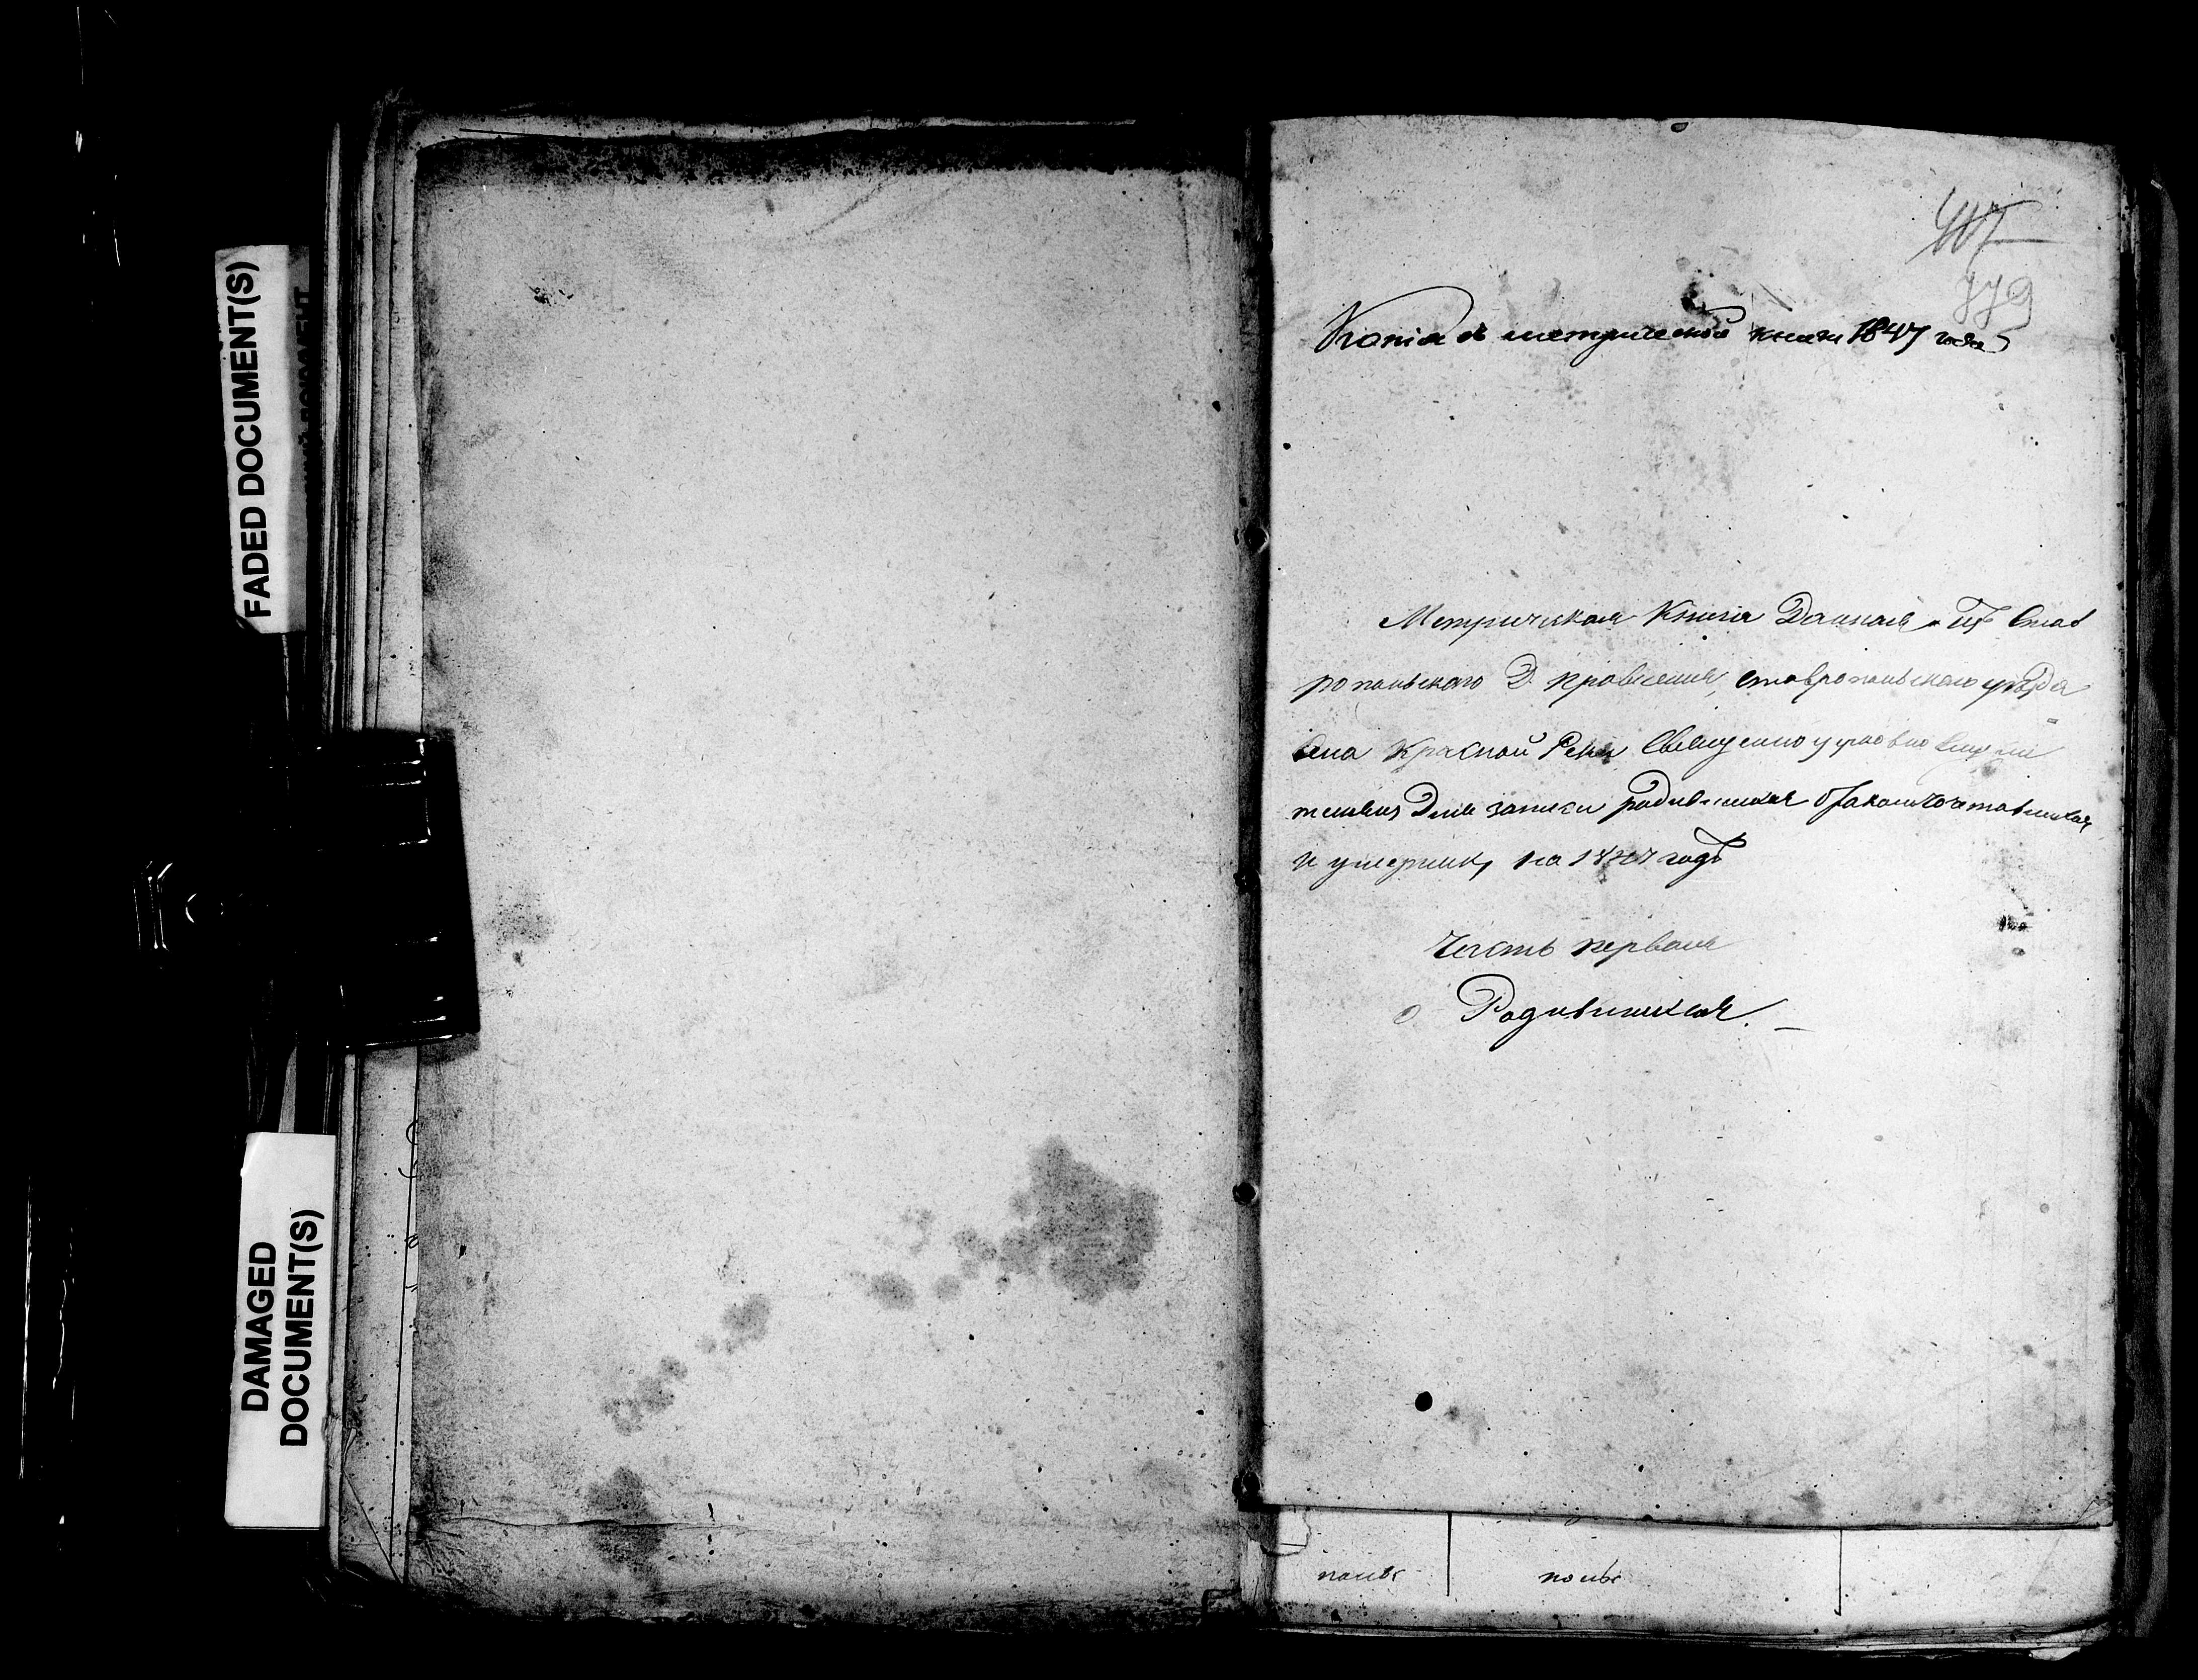 FADED DOCUMENT(S)
DAMAGED
DOCUMENT(S)
407
779
Копія съ метрической книги 1847 года
Метрическая Книга Данная изъ Став
ропольскаго Д. правленія, ставропольскаго уѣзда
села Красной Реки Священно церковно служи
телямъ Для записки родившихся бракомъсочетавшихся
и умершихъ, на 1847 годъ
Часть первая
о Родившихся.
польс польс